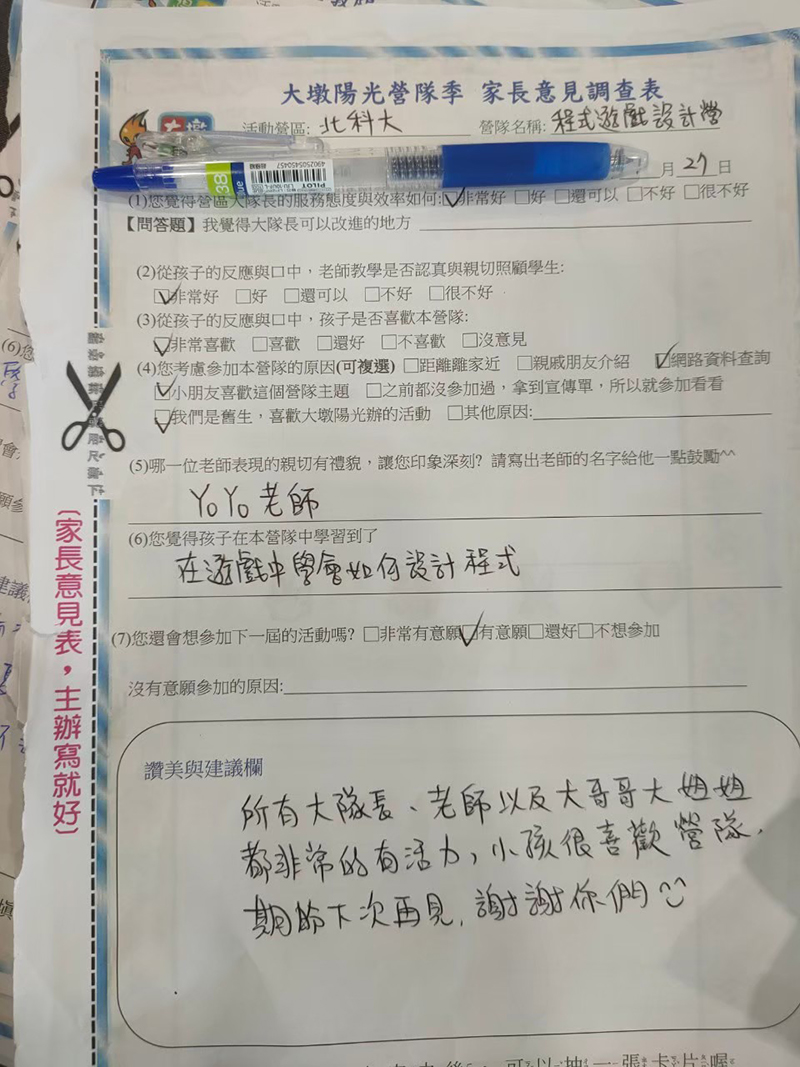 大墩陽光營隊季 家長意見調查表
大墩
活動營區: 北科大 營隊名稱: 程式遊戲設計營
月 27 日
4902505450457
PILOT
38
Blue
(1)您覺得營區大隊長的服務態度與效率如何:☑非常好 □好 □還可以 □不好 □很不好
【問答題】我覺得大隊長可以改進的地方
(2)從孩子的反應與口中，老師教學是否認真與親切照顧學生:
☑非常好 □好 □還可以 □不好 □很不好
(3)從孩子的反應與口中，孩子是否喜歡本營隊:
☑非常喜歡 □喜歡 □還好 □不喜歡 □沒意見
(4)您考慮參加本營隊的原因(可複選) □距離離家近 □親戚朋友介紹 ☑網路資料查詢
☑小朋友喜歡這個營隊主題 □之前都沒參加過，拿到宣傳單，所以就參加看看
☑我們是舊生，喜歡大墩陽光辦的活動 □其他原因:
(5)哪一位老師表現的親切有禮貌，讓您印象深刻? 請寫出老師的名字給他一點鼓勵^^
YoYo老師
(6)您覺得孩子在本營隊中學習到了
在遊戲中學會如何設計程式
(7)您還會想參加下一屆的活動嗎? □非常有意願☑有意願□還好□不想參加
沒有意願參加的原因:
讚美與建議欄
所有大隊長、老師以及大哥哥大姐姐
都非常的有活力，小孩很喜歡營隊，
期盼下次再見，謝謝你們
〔家長意見表，主辦寫就好〕
可以抽一張卡片喔